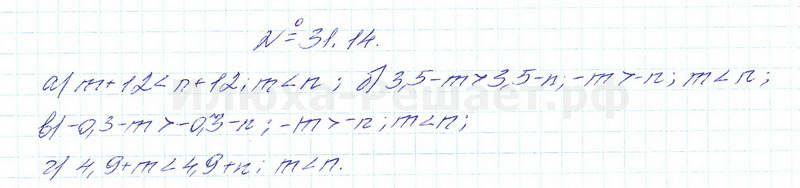 № 31.14.
а) m+12<n+12; m<n; б) 3,5-m>3,5-n; -m>-n; m<n;
Илюха-Решает.рф
в) -0,3-m>-0,3-n; -m>-n; m<n;
г) 4,9+m<4,9+n; m<n.